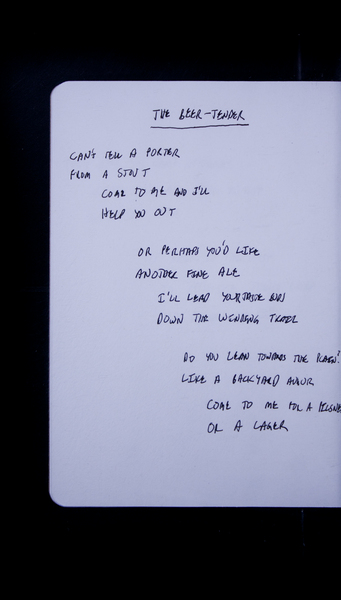 THE BEER-TENDER
CAN'T TELL A PORTER
FROM A STOUT
COME TO ME AND I'LL
HELP YOU OUT
OR PERHAPS YOU'D LIKE
ANOTHER FINE ALE
I'LL LEAD YOUR TASTE BUDS
DOWN THE WINDING TRAIL
DO YOU LEAN TOWARDS THE
LIKE A BACKYARD
COME TO ME FOR A
OR A LAGER